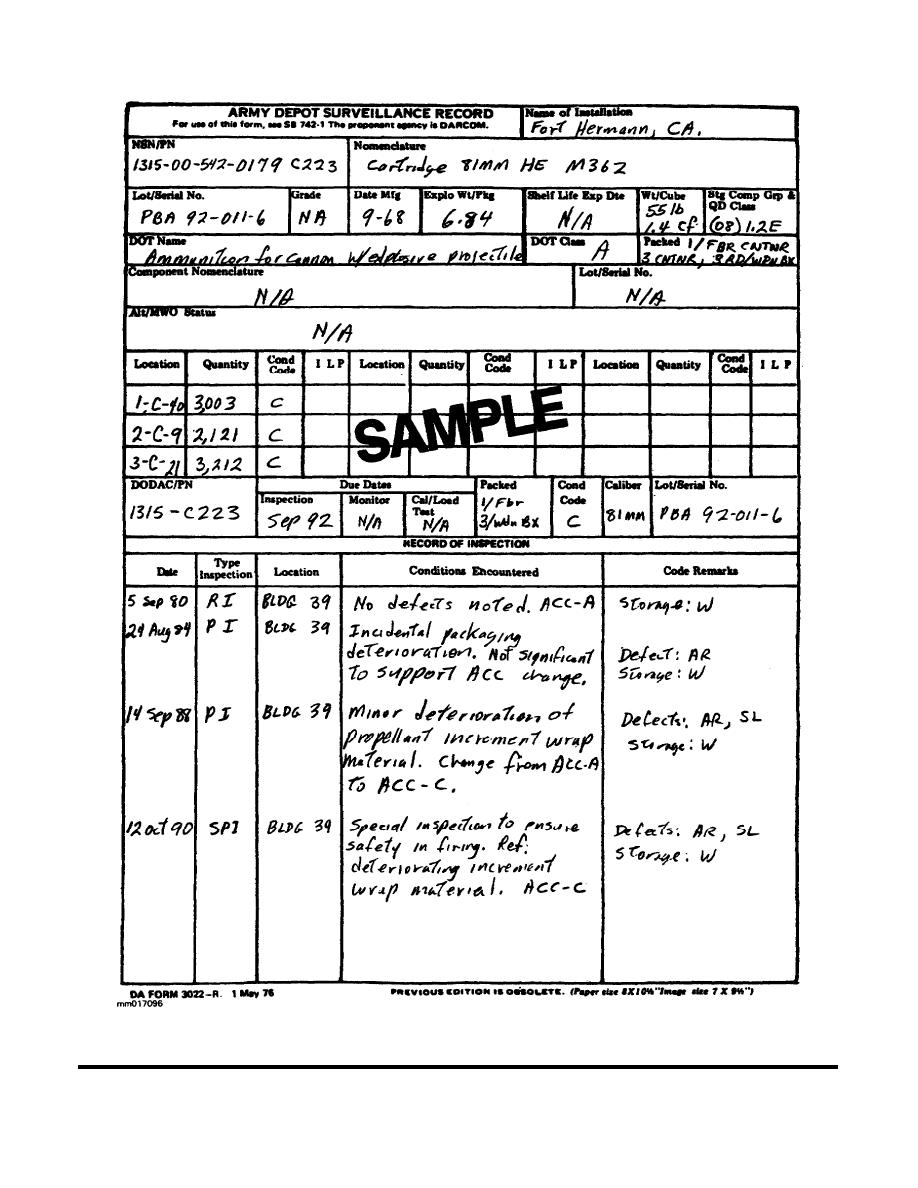 ARMY DEPOT SURVEILLANCE RECORD
For use of this form, see SB 742-1 The proponent agency is DARCOM.
Name of Installation
Fort Hermann, CA.
NSN/PN
1315-00-542-0179 C223
Nomenclature
Cartridge 81MM HE M362
Lot/Serial No.
PBA 92-011-6
Grade
NA
Date Mfg
9-68
Explo Wt/Pkg
6.84
Shelf Life Exp Dte
N/A
Wt/Cube
55 lb
1.4 cf
Stg Comp Grp &
QD Class
(08) 1.2E
DOT Name
Ammunition for Cannon W/explosive projectile
DOT Class
A
Packed 1/FBR CNTNR
3 CNTNR, 3 RD/WDN BX
Component Nomenclature
N/A
Lot/Serial No.
N/A
Alt/MWO Status
N/A
Location Quantity Cond Code I L P Location Quantity Cond Code I L P Location Quantity Cond Code I L P
1-C-40 3,003 C
2-C-9 2,121 C
3-C-21 3,212 C
SAMPLE
DODAC/PN
1315-C223
Due Dates
Inspection
Sep 92
Monitor
N/A
Cal/Load
Test
N/A
Packed
1/Fbr
3/wdn BX
Cond
Code
C
Caliber
81MM
Lot/Serial No.
PBA 92-011-6
RECORD OF INSPECTION
Date Type Inspection Location Conditions Encountered Code Remarks
5 Sep 80 RI BLDG 39 No defects noted. ACC-A Storage: W
29 Aug 84 PI BLDG 39 Incidental packaging
deterioration. Not significant Defect: AR
to support ACC change. Storage: W
14 Sep 88 PI BLDG 39 Minor deterioration of Defects: AR, SL
propellant increment wrap Storage: W
material. Change from ACC-A
to ACC-C.
12 Oct 90 SPI BLDG 39 Special inspection to ensure Defects: AR, SL
safety in firing. Ref: Storage: W
deteriorating increment
wrap material. ACC-C
DA FORM 3022-R. 1 May 76
PREVIOUS EDITION IS OBSOLETE. (Paper size 8X10½" Image size 7 X 9½")
mm017096